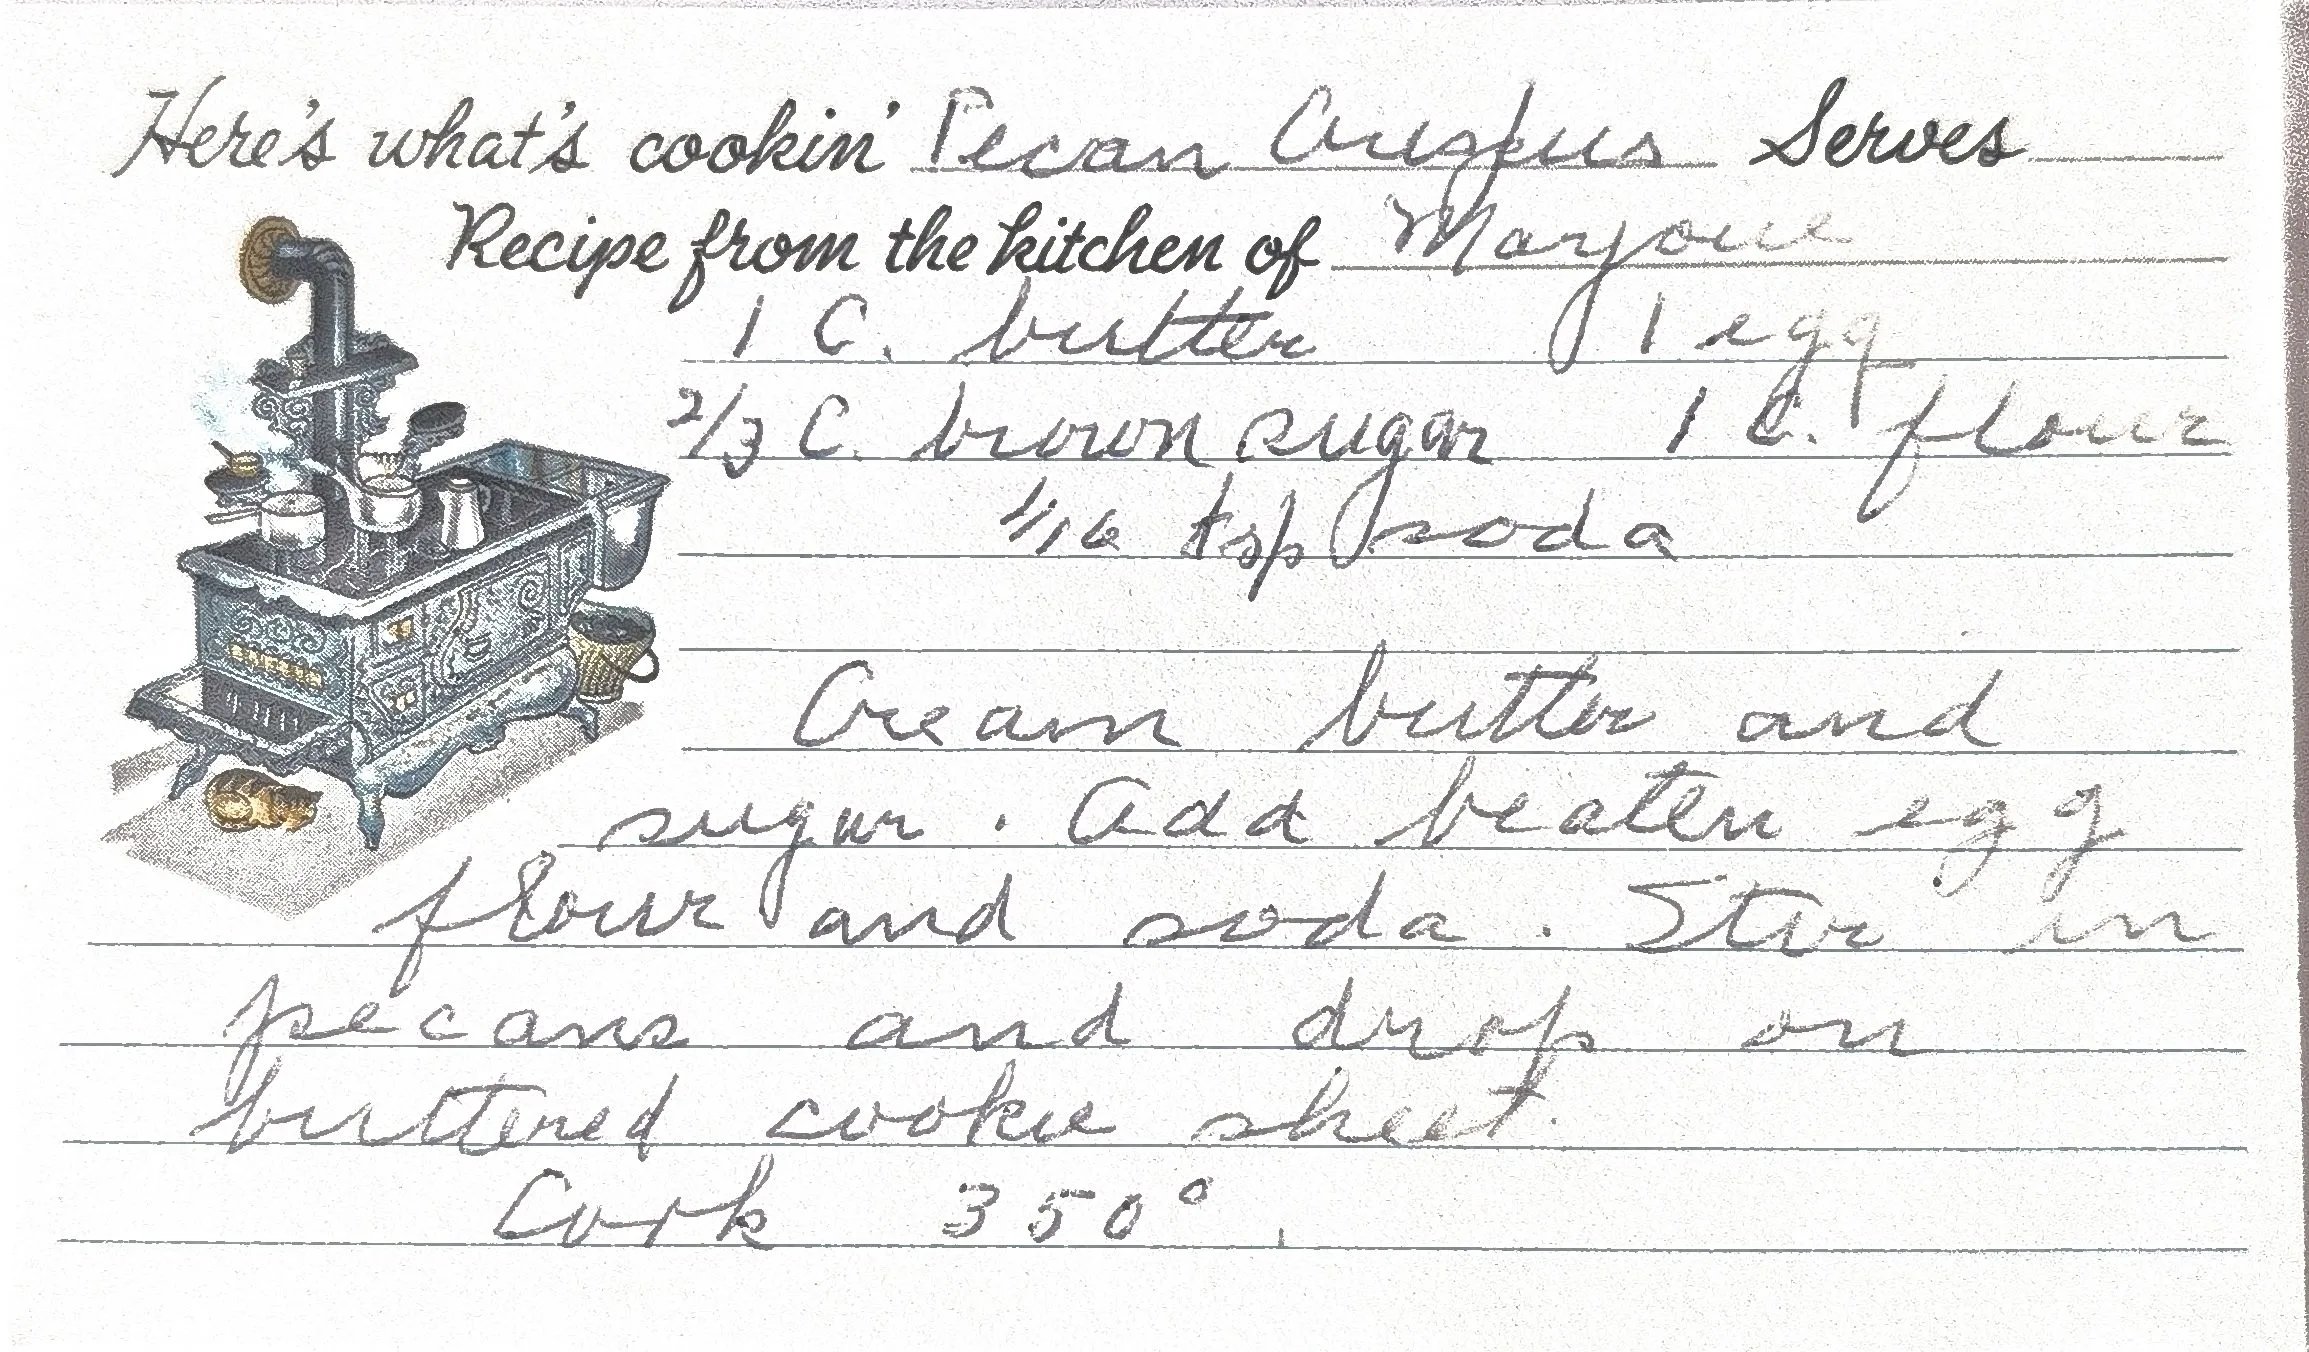 Here's what's cookin' Pecan Crispies Serves
Recipe from the kitchen of Marjorie
1 C. butter 1 egg
2/3 C. brown sugar 1 C. flour
1/16 tsp soda
Cream butter and
sugar. Add beaten egg
flour and soda. Stir in
pecans and drop on
buttered cookie sheet.
Cook 350°.